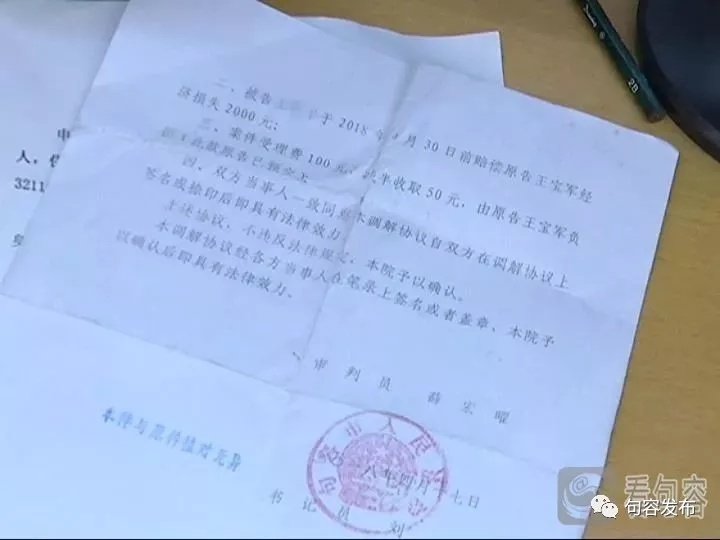 二、被告
于2018年4月30日前赔偿原告王宝军经
济损失2000元；
三、案件受理费100元，减半收取50元，由原告王宝军负
担（此款原告已预交）。
四、双方当事人一致同意本调解协议自双方在调解协议上
签名或捺印后即具有法律效力。
上述协议，不违反法律规定，本院予以确认。
本调解协议经各方当事人在笔录上签名或者盖章、本院予
以确认后即具有法律效力。
审判员 薛宏曜
句容市人民法
八年四月
七日
本件与原件核对无异
书记员 刘
申
人，
3211
看句容
句容发布
2B